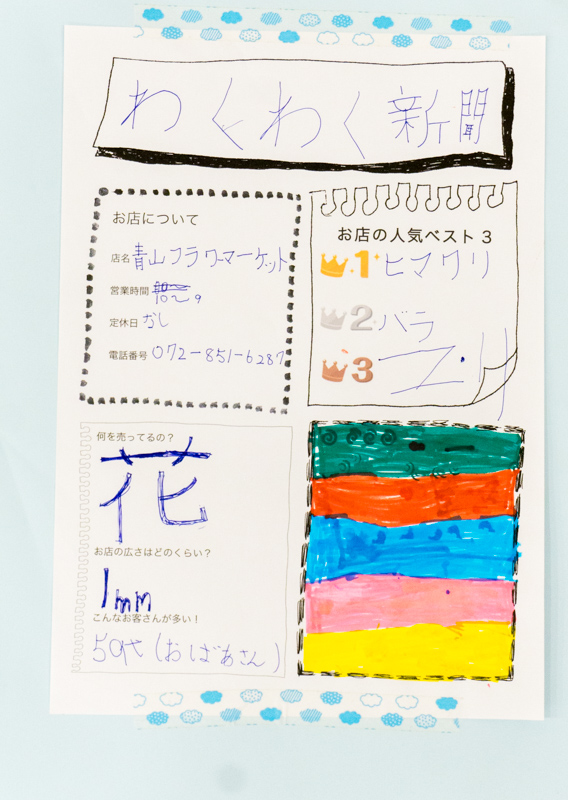 わくわく新聞
お店について
店名 青山フラワーマーケット
営業時間 10〜9
定休日 なし
電話番号 072-851-6287
お店の人気ベスト3
1 ヒマワリ
2 バラ
3
何を売ってるの?
花
お店の広さはどのくらい?
1mm
こんなお客さんが多い!
50代(おばあさん)